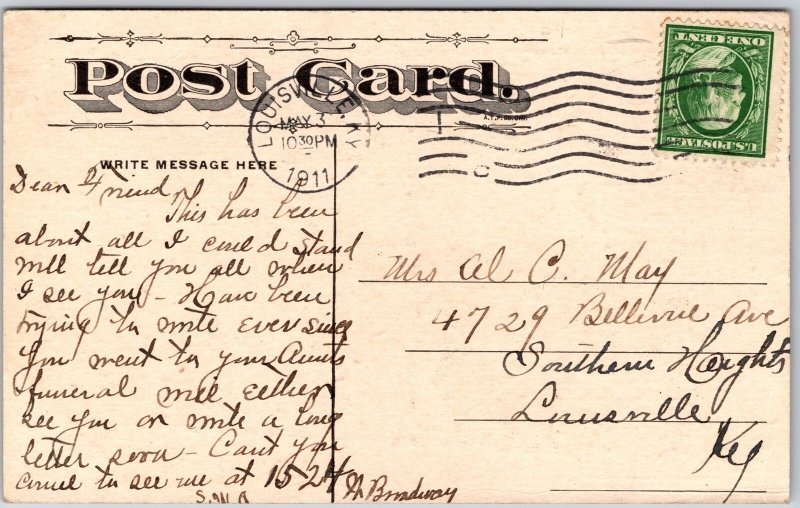 Post Card.
LOUISVILLE, KY
MAY 3
10 30 PM
1911
U.S. POSTAGE
ONE CENT
WRITE MESSAGE HERE
Dear Friend
This has been
about all I could stand
will tell you all when
I see you - Have been
trying to write ever since
you went to your Aunts
funeral will either
see you or write a long
letter soon - Cant you
come to see me at 1524
W Broadway
Mrs Al C. May
4729 Bellevue Ave
Southern Heights
Louisville
Ky